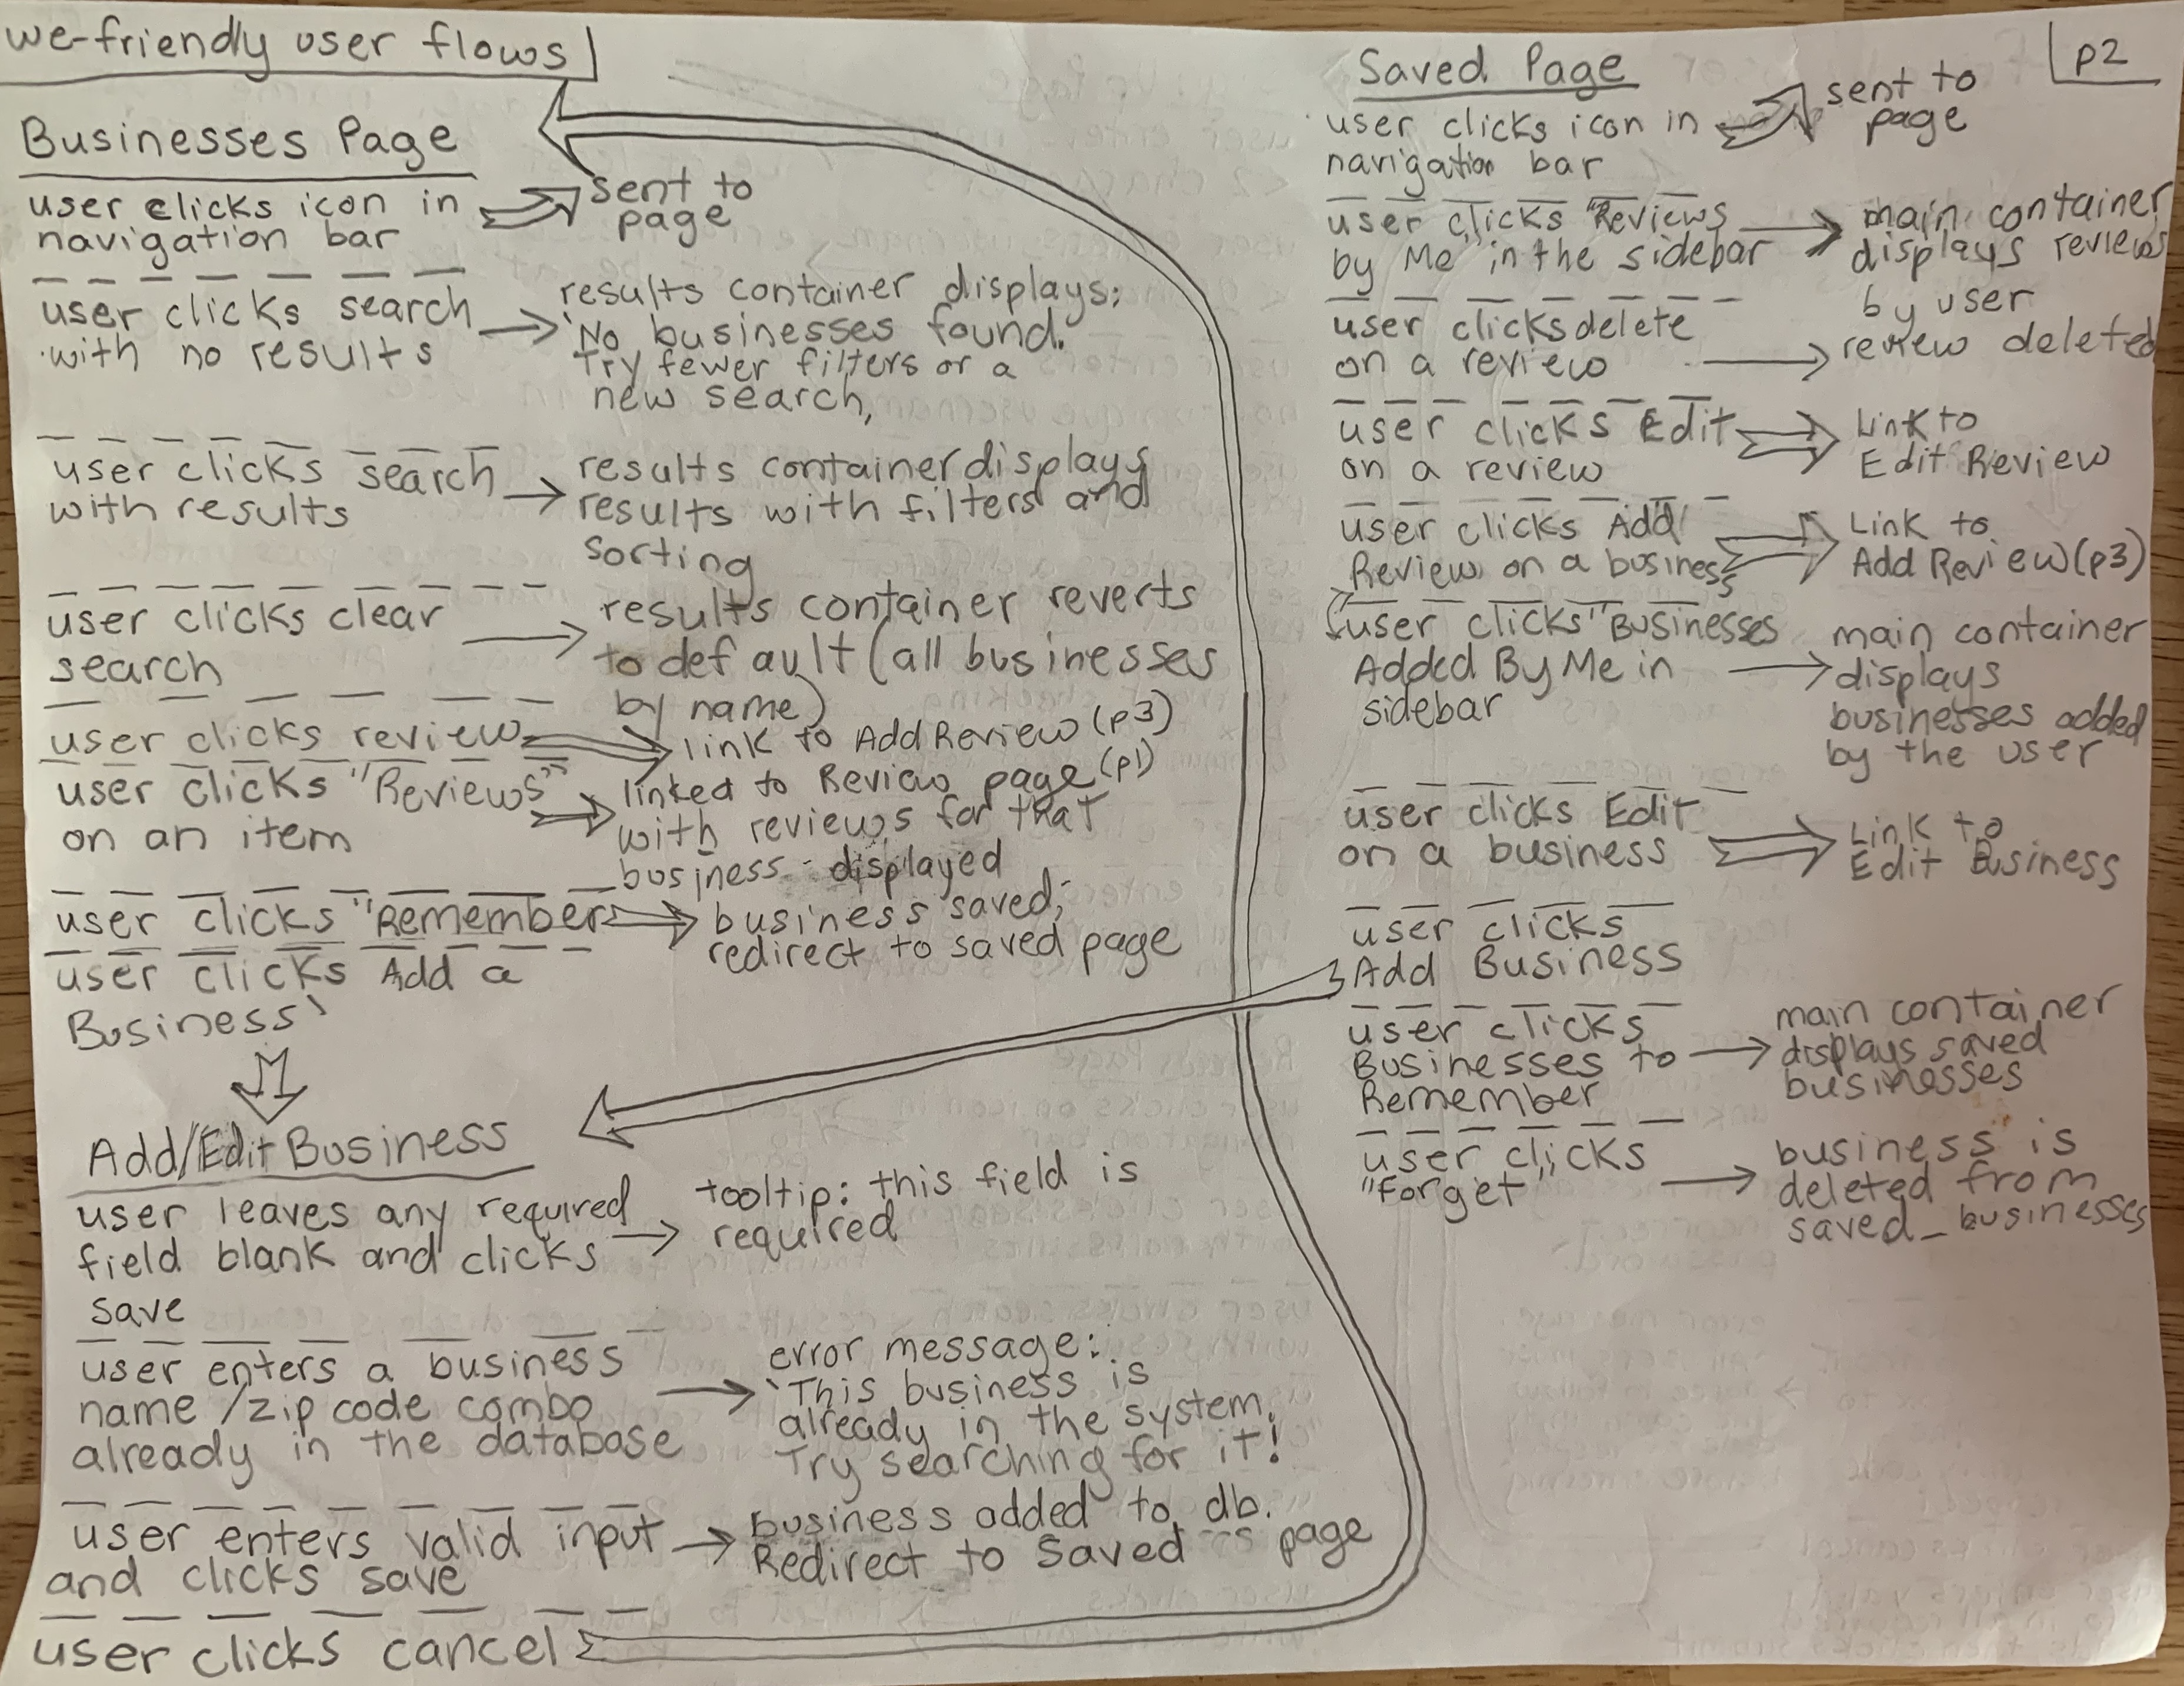 we-friendly user flows
Businesses Page
user clicks icon in
navigation bar
sent to
page
user clicks search
with no results
results container displays:
"No businesses found.
Try fewer filters or a
new search,
user clicks search
with results
results container displays
results with filters and
sorting
user clicks clear
search
results container reverts
to default (all businesses
by name)
user clicks review
link to Add Review (p3)
user clicks "Reviews"
on an item
linked to Review page (p1)
with reviews for that
business displayed
user clicks "Remember
business saved;
redirect to saved page
user clicks Add a
Business
Add/Edit Business
user leaves any required
field blank and clicks
save
tooltip: this field is
required
user enters a business
name /zip code combo
already in the database
error message:
"This business is
already in the system.
Try searching for it!
user enters valid input
and clicks save
business added to db.
Redirect to Saved page
user clicks cancel
p2
Saved Page
user clicks icon in
navigation bar
sent to
page
user clicks "Reviews
by Me" in the sidebar
main container
displays reviews
by user
user clicks delete
on a review
review deleted
user clicks Edit
on a review
Link to
Edit Review
user clicks Add
Review on a business
Link to
Add Review (p3)
user clicks "Businesses
Added By Me in
sidebar
main container
displays
businesses added
by the user
user clicks Edit
on a business
Link to
Edit Business
user clicks
Add Business
user clicks
Businesses to
Remember
main container
displays saved
businesses
user clicks
"Forget"
business is
deleted from
saved_businesses